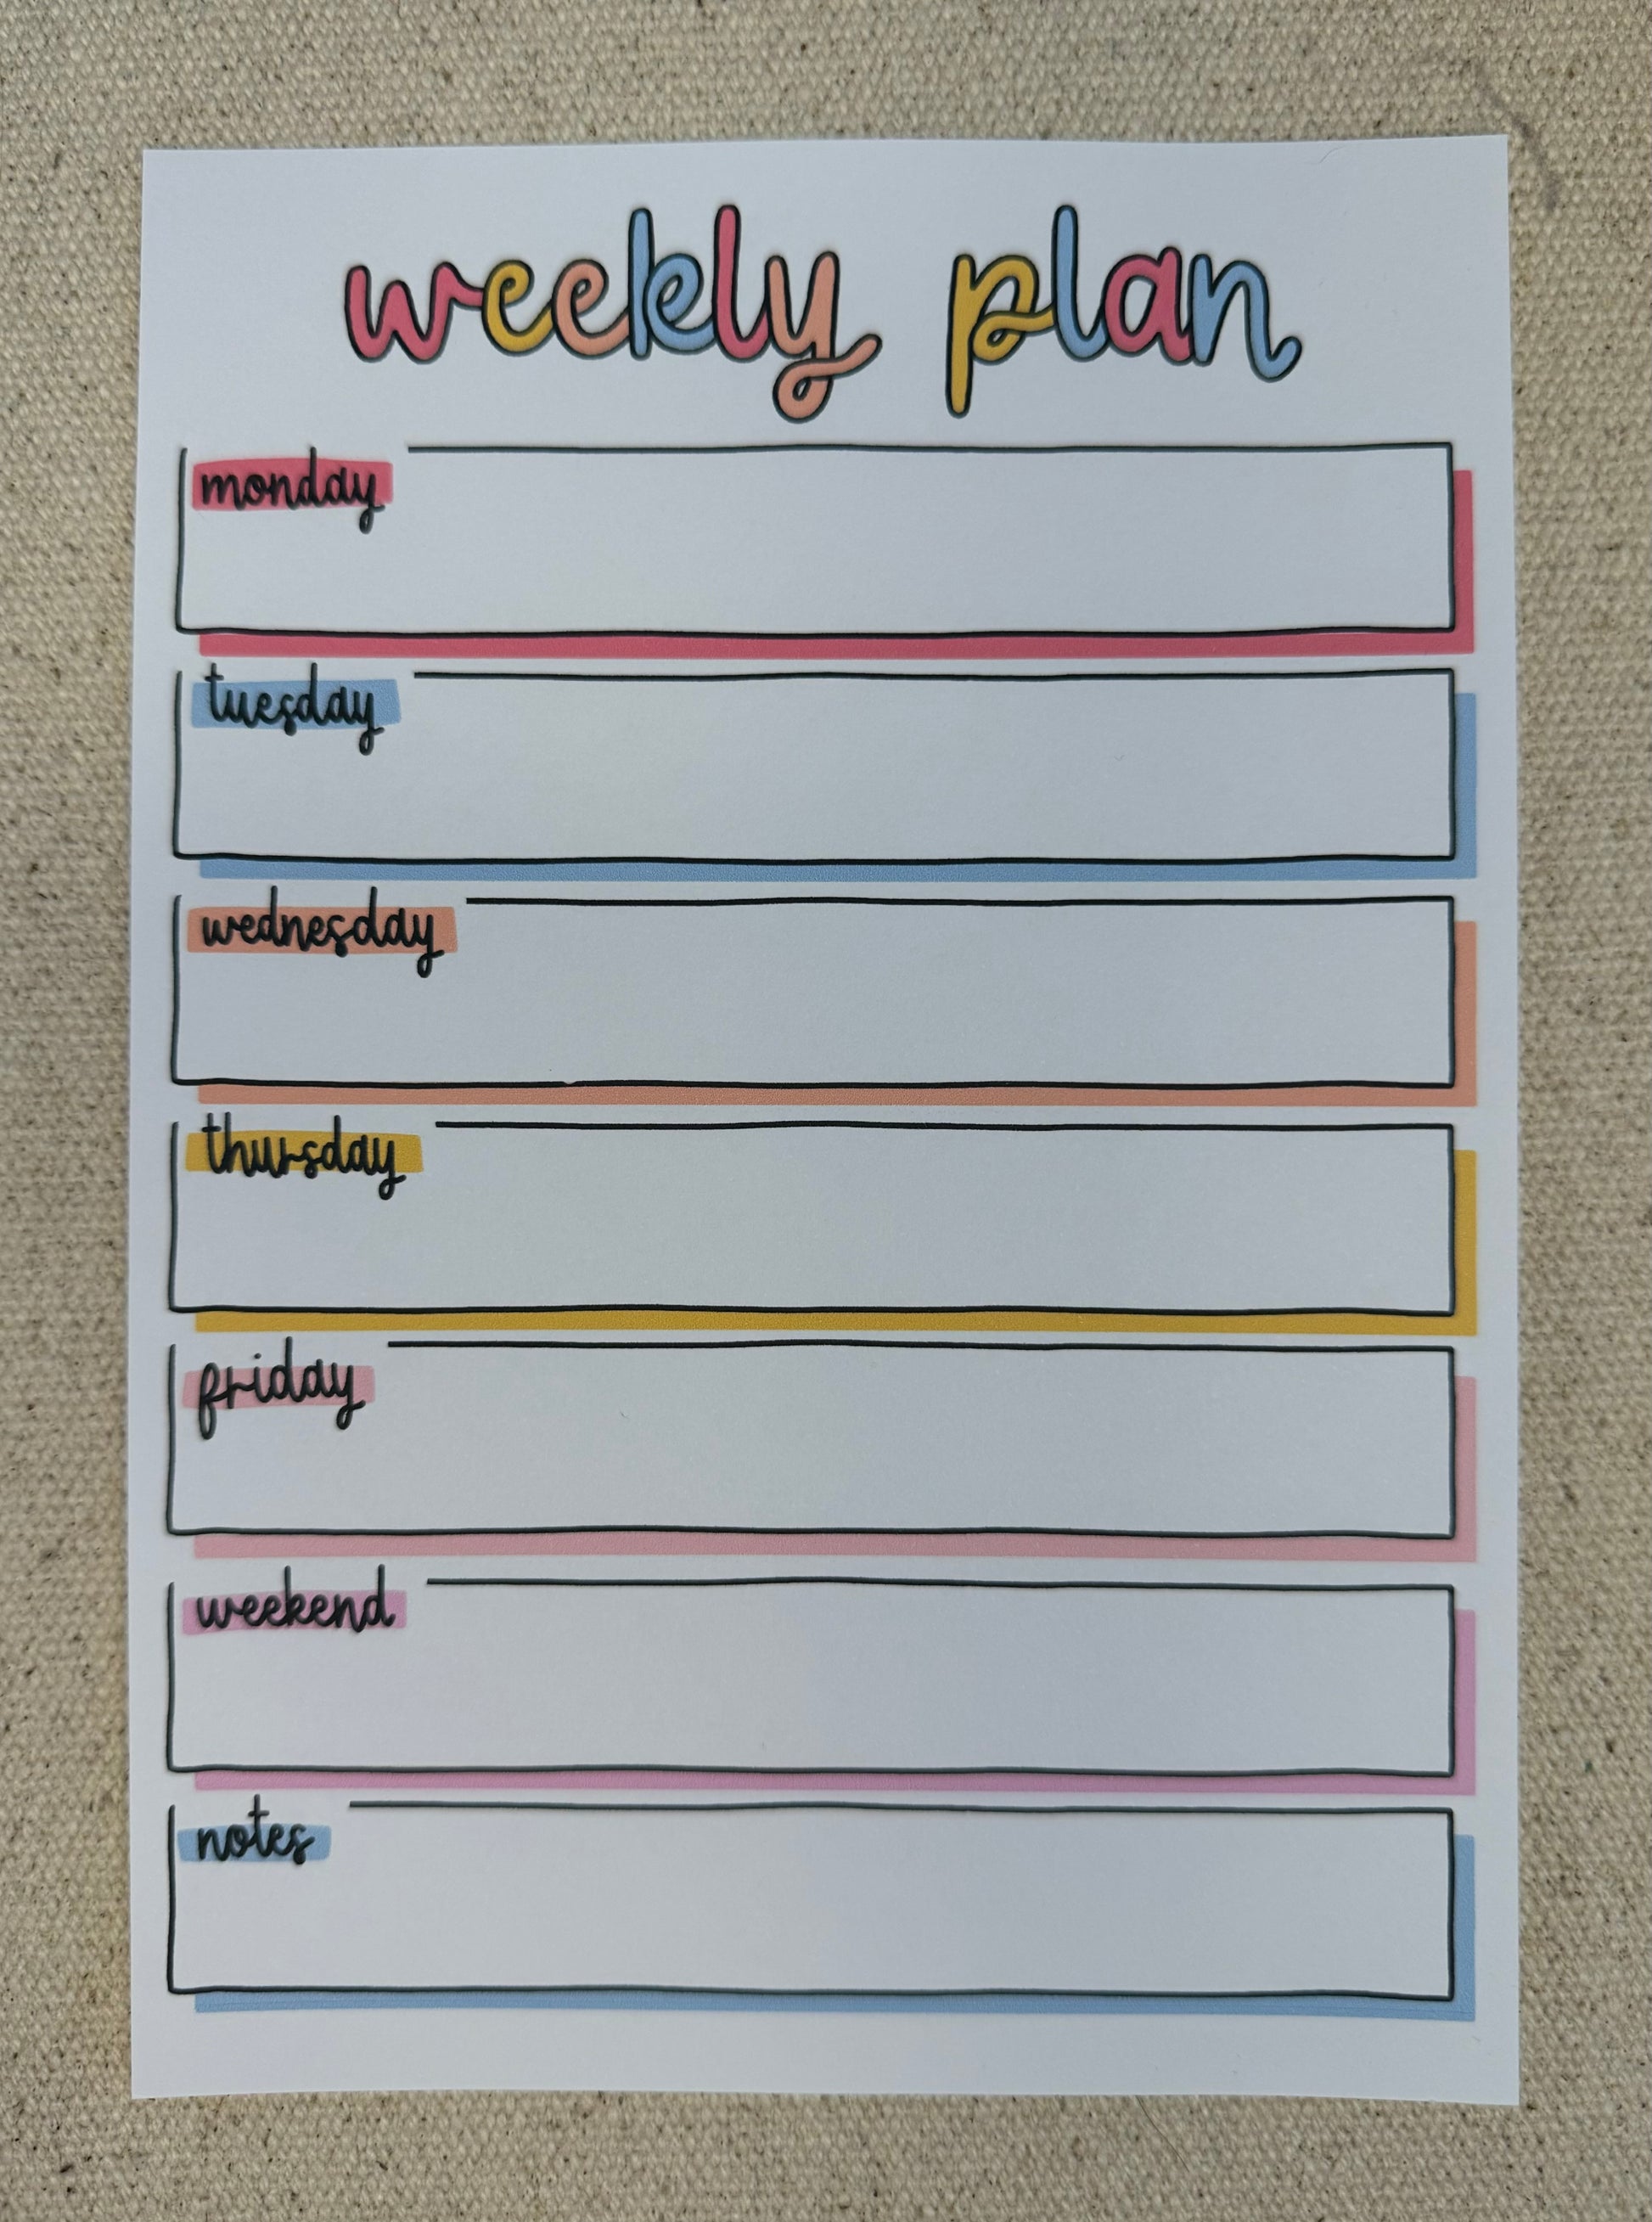 weekly plan
monday
tuesday
wednesday
thursday
friday
weekend
notes